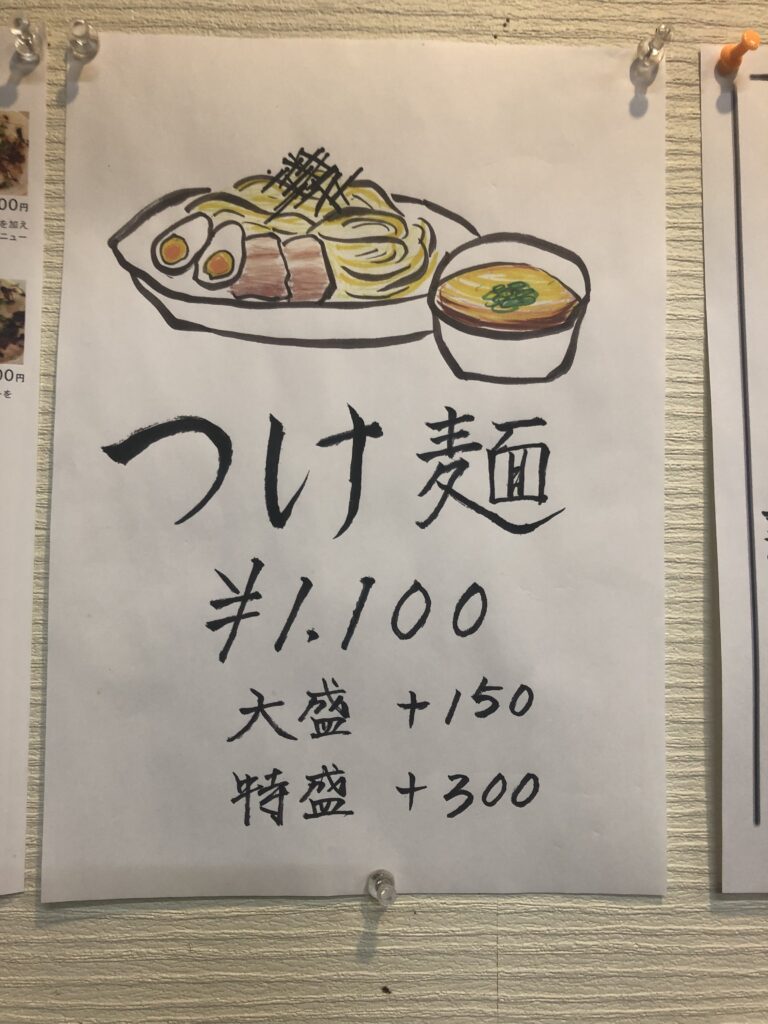 つけ麺
¥1.100
大盛 +150
特盛 +300
00円
を加え
ニュー
00円
を